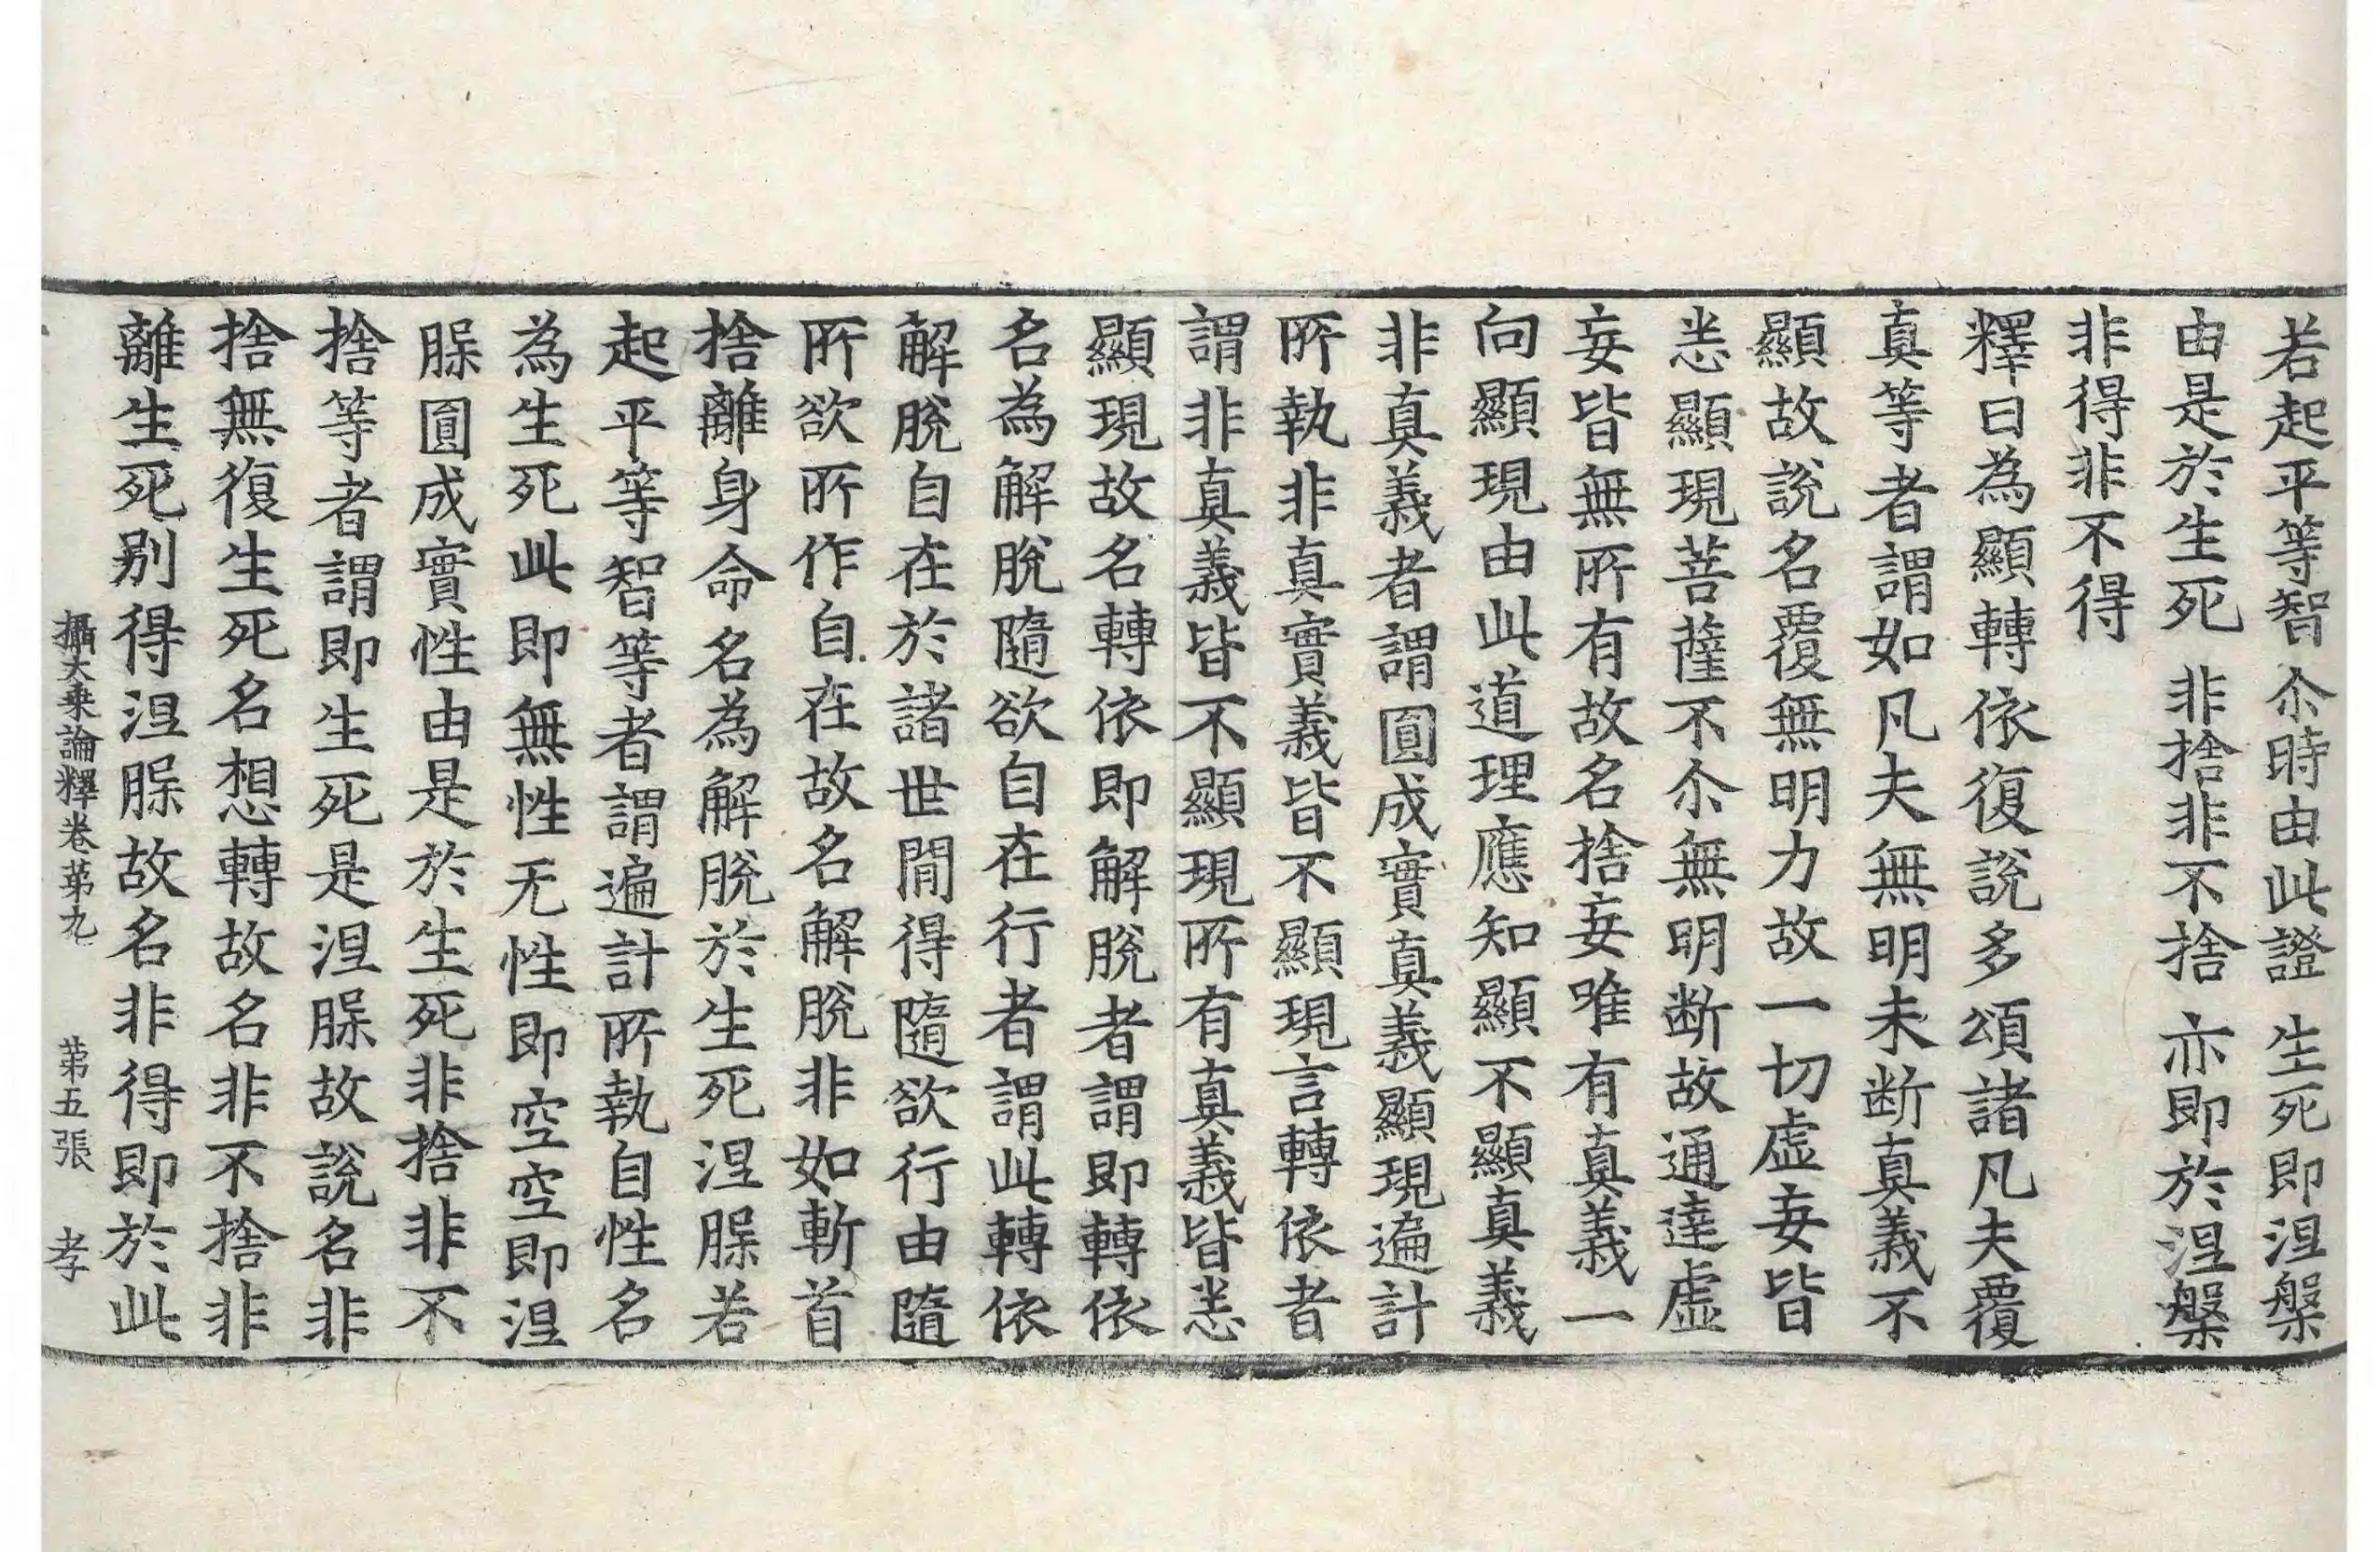 若起平等智 尒時由此證 生死即涅槃
由是於生死 非捨非不捨 亦即於涅槃
非得非不得
釋曰為顯轉依復說多頌諸凡夫覆
真等者謂如凡夫無明未断真義不
顯故說名覆無明力故一切虛妄皆
悉顯現菩薩不尒無明断故通達虛
妄皆無所有故名捨妄唯有真義一
向顯現由此道理應知顯不顯真義
非真義者謂圓成實真義顯現遍計
所執非真實義皆不顯現言轉依者
謂非真義皆不顯現所有真義皆悉
顯現故名轉依即解脫者謂即轉依
名為解脫隨欲自在行者謂此轉依
解脫自在於諸世間得隨欲行由隨
所欲所作自在故名解脫非如斬首
捨離身命名為解脫於生死涅槃若
起平等智等者謂遍計所執自性名
為生死此即無性无性即空空即涅
槃圓成實性由是於生死非捨非不
捨等者謂即生死是涅槃故說名非
捨無復生死名想轉故名非不捨非
離生死別得涅槃故名非得即於此
攝大乘論釋卷第九 第五張 孝